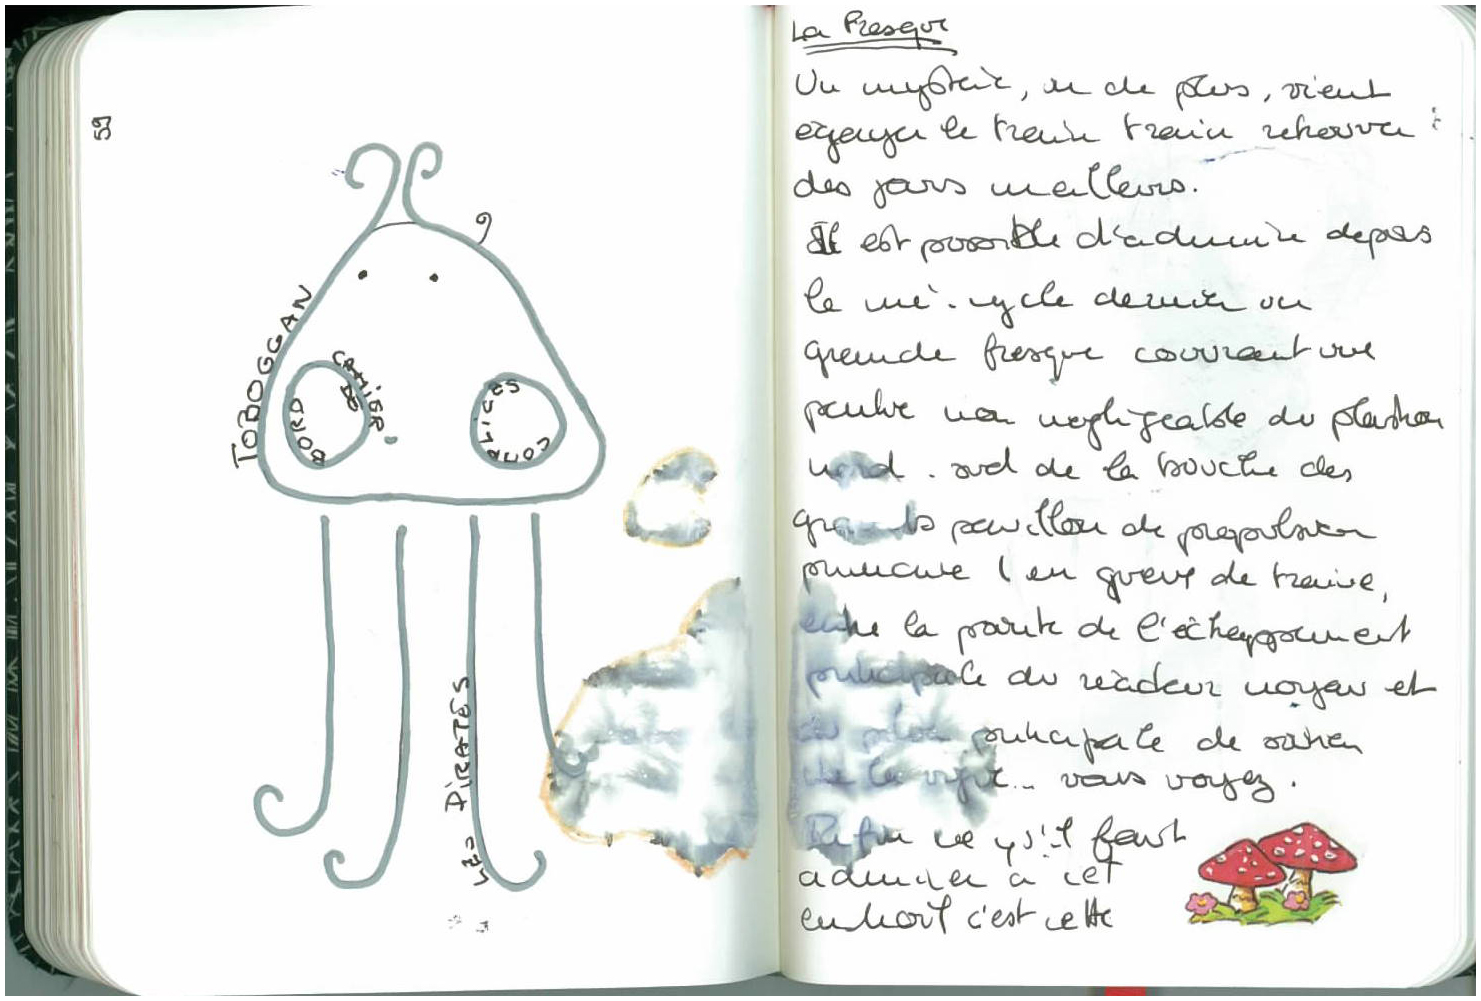 59
TOBOGGAN
CAHIER
DE
BORD
COMPLICES
LES PIRATES
La Fresque
Un mystère, un de plus, vient
égayer le train train retrouver :
des jours meilleurs.
Il est possible d'admirer depuis
le mi-cycle dernier une
grande fresque couvrant une
partie non negligeable du plastron
nord-sud de la bouche des
grands pavillon de propulsion
primaire (en queue de traine,
entre la partie de l'échappement
principale du réacteur noyau et
principale de
vous voyez.
ce qu'il faut
admirer à cet
endroit c'est cette